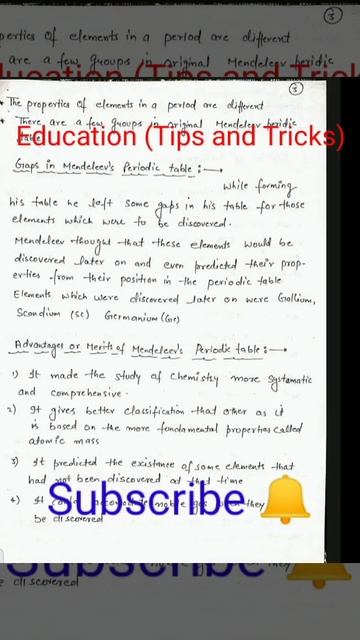 ③
perties of elements in a period are different
are a few groups in original Mendeleev peridic
③
The properties of elements in a period are different
There are a few groups in original Mendeleev peridic
table
Education (Tips and Tricks)
Gaps in Mendeleev's Periodic table :⟶
while forming
his table he left some gaps in his table for those
elements which were to be discovered.
Mendeleev thought that these elements would be
discovered later on and even predicted their prop-
erties from their position in the periodic table
Elements which were discovered later on were Gallium,
Scandium (Sc) Germanium (Ge)
Advantages or Merits of Mendeleev's Periodic table :⟶
1) It made the study of chemistry more systamatic
and comprehensive.
2) It gives better classification that other as it
is based on the more fundamental properties called
atomic mass
3) It predicted the existance of some elements that
had not been discovered at that time
4) It they
be discovered
Subscribe
discovered